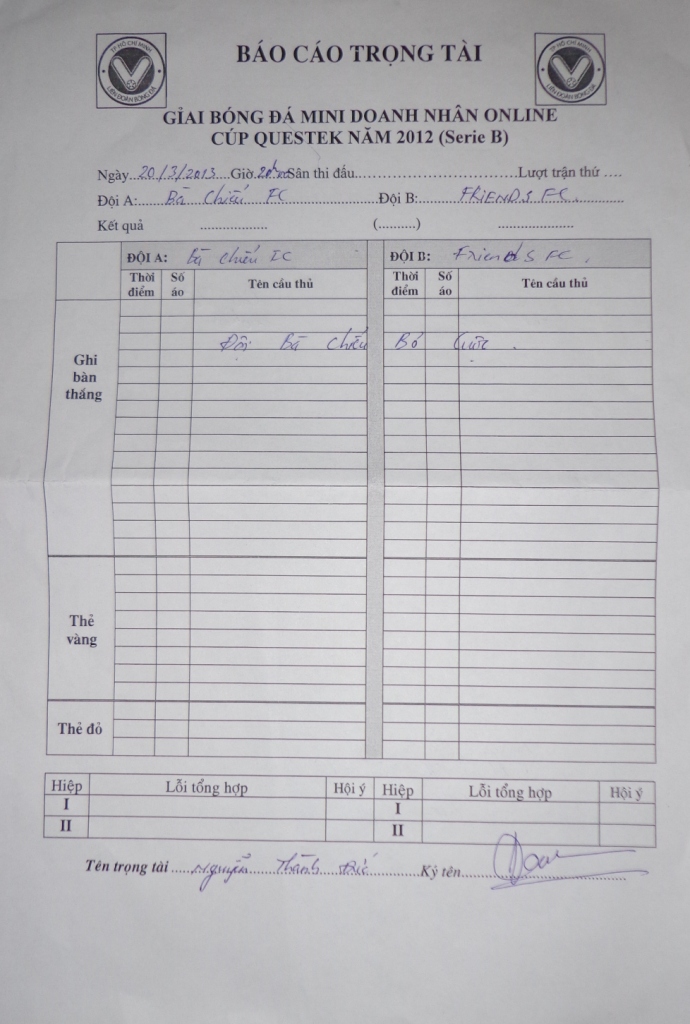 TP HỒ CHÍ MINH
LIÊN ĐOÀN BÓNG ĐÁ
BÁO CÁO TRỌNG TÀI
TP HỒ CHÍ MINH
LIÊN ĐOÀN BÓNG ĐÁ
GIẢI BÓNG ĐÁ MINI DOANH NHÂN ONLINE
CÚP QUESTEK NĂM 2012 (Serie B)
Ngày...20/3/2013...Giờ.20h..Sân thi đấu..........................................Lượt trận thứ ....
Đội A:......Bà Chiểu FC..................Đội B:..........FRIENDS FC............
Kết quả .................. (..........) ....................
ĐỘI A: Bà Chiểu FC ĐỘI B: Friends FC.
Thời điểm Số áo Tên cầu thủ Thời điểm Số áo Tên cầu thủ
Ghi bàn thắng
Đội Bà Chiểu Bỏ Cuộc.
Thẻ vàng
Thẻ đỏ
Hiệp Lỗi tổng hợp Hội ý Hiệp Lỗi tổng hợp Hội ý
I I
II II
Tên trọng tài ......Nguyễn Thành............Ký tên..............................